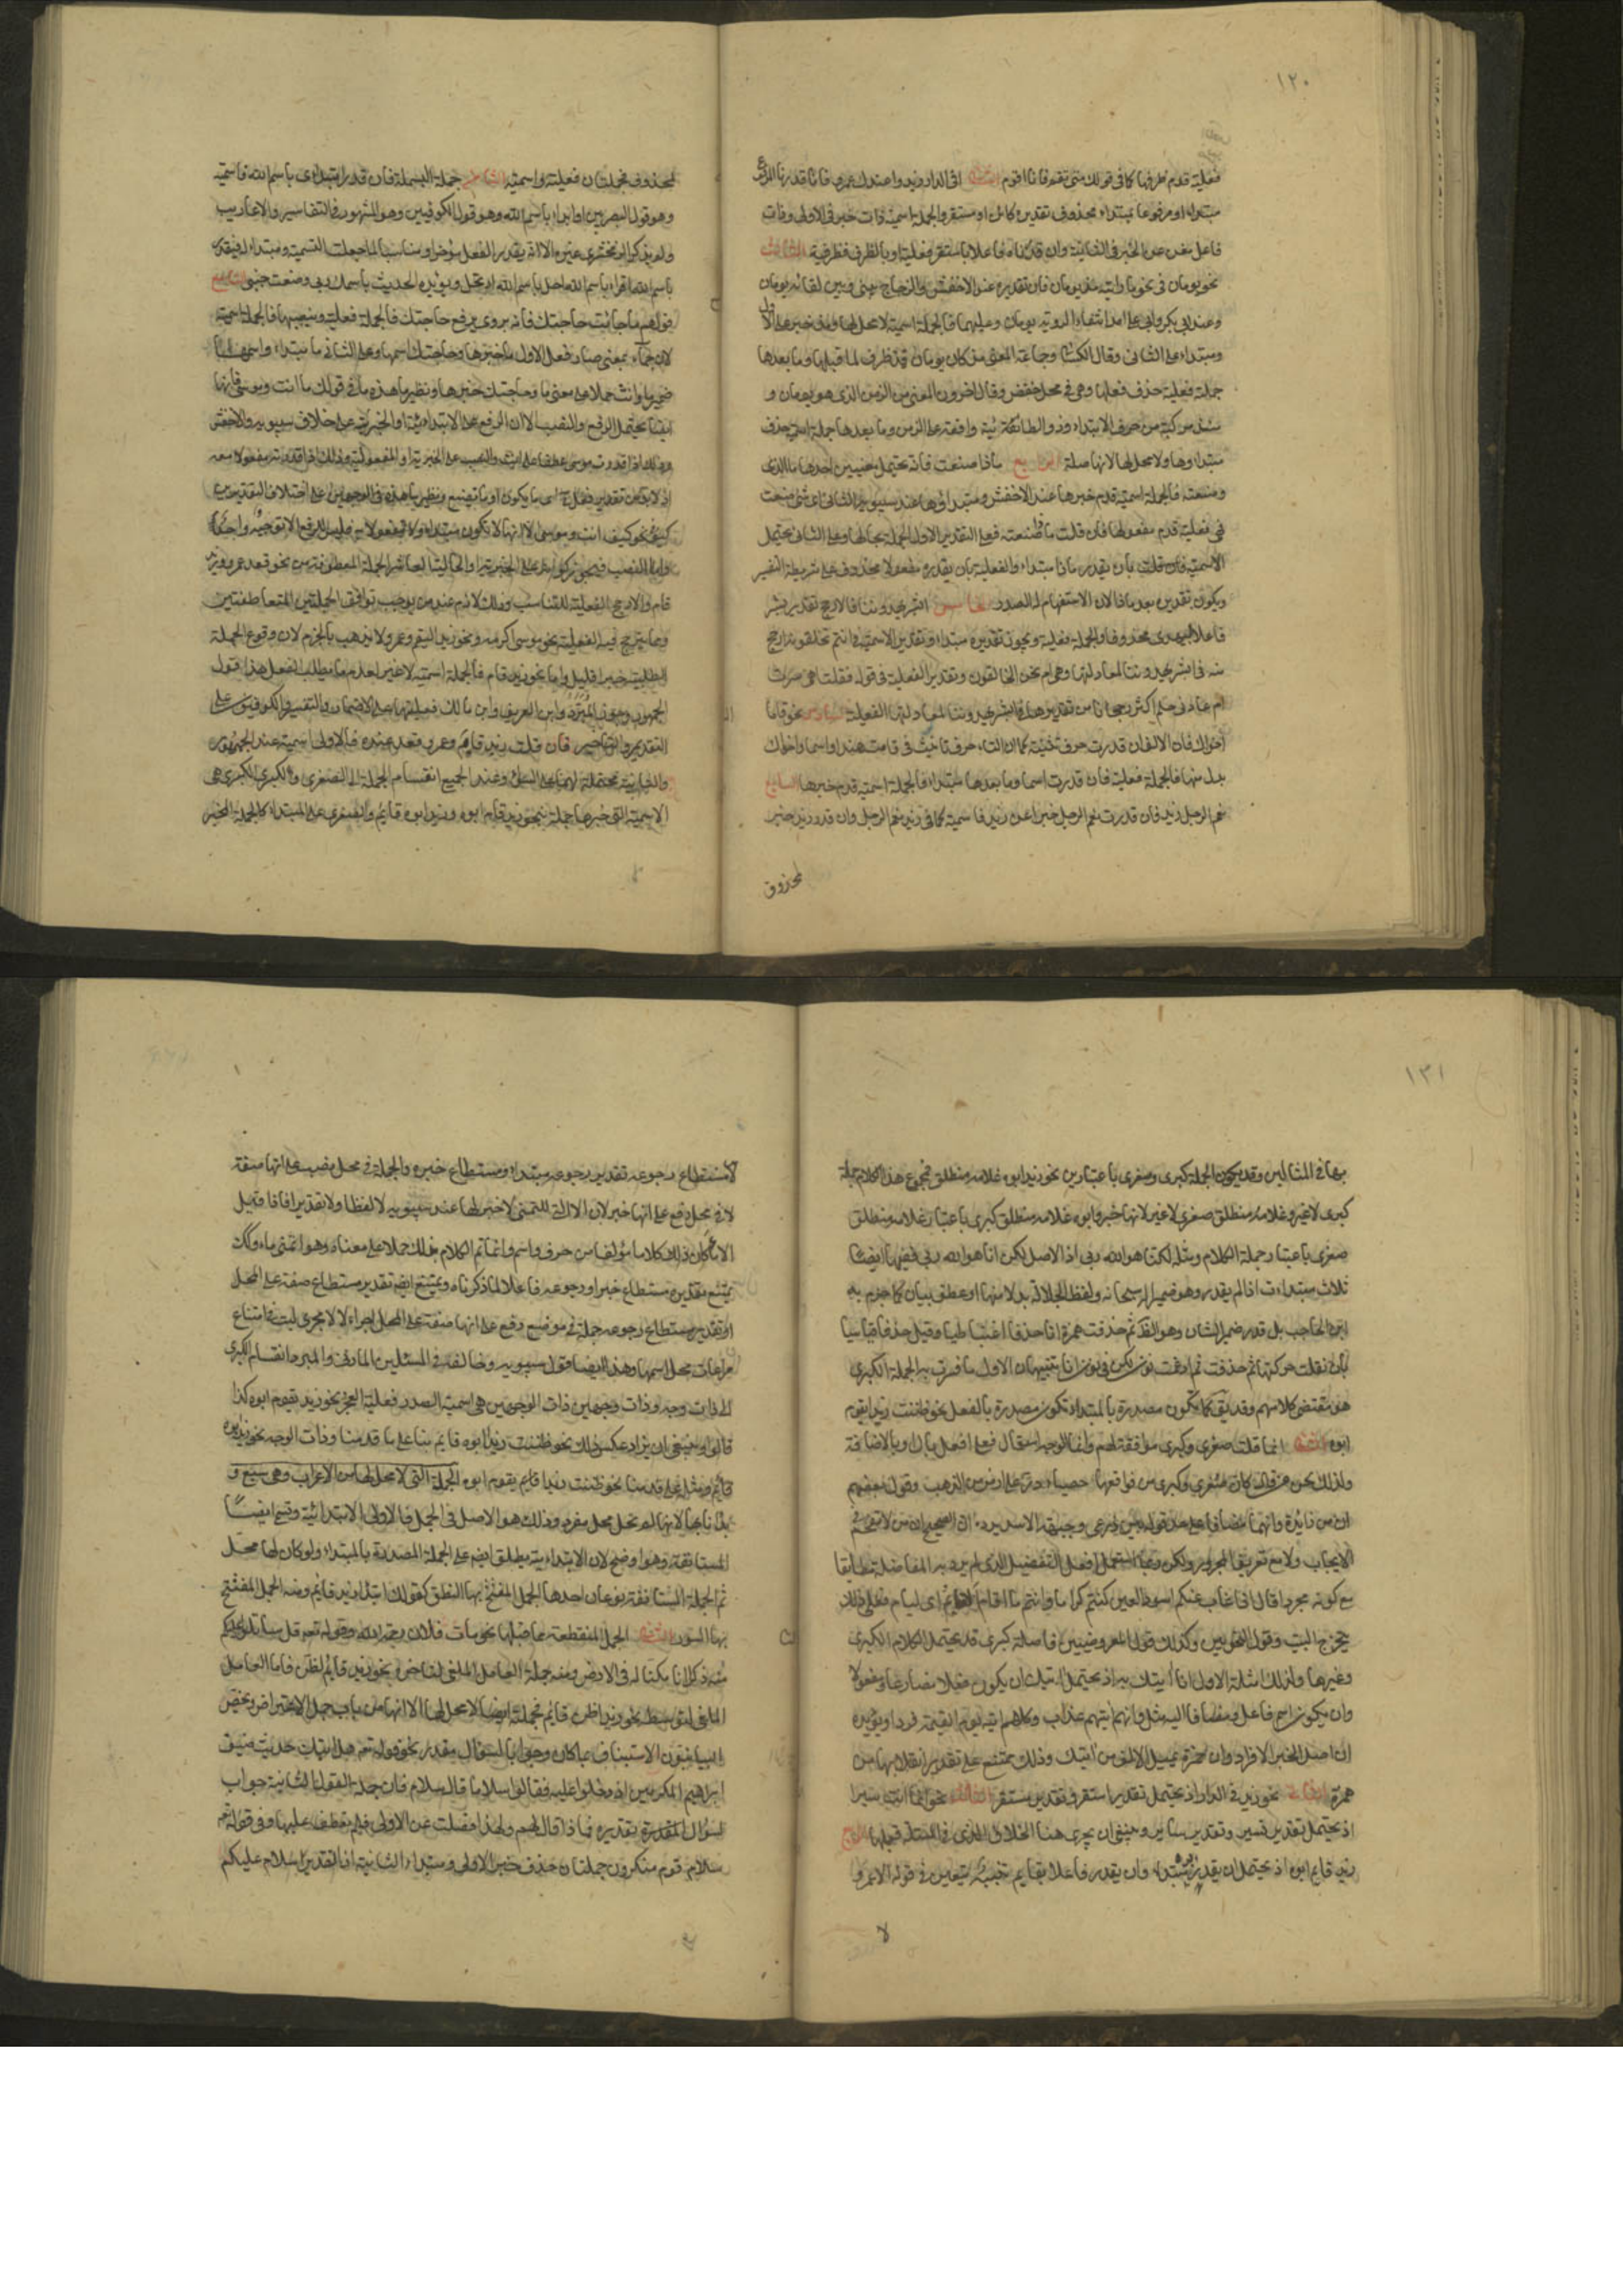 ١٢٠
فعلية قدم ظرفها كما في قولك متى تقم فانا اقوم الثاني افي الدار زيد واعندك عمرو فانا ان قدرنا المرفوع
مبتداء او مرفوعا بمبتداء محذوف تقديره كائن او مستقر والجملة اسمية ذات خبر في الاولى وذات
فاعل مغن عن الخبر في الثانية وان قدرناه فاعلا باستقر ففعلية او بالظرف فظرفية الثالث
نحو يومان في نحو ما رايته مذ يومان فان تقديره عند الاخفش والزجاج بيني وبين لقائه يومان
وعند ابي بكر وابي علي امد انتفاء الروية يومان وعليهما فالجملة اسمية لا محل لها ومذ خبر على الاول
ومبتداء على الثاني وقال الكسائي وجماعة المعنى مذ كان يومان فمذ ظرف لما قبلها وما بعدها
جملة فعلية حذف فعلها وهي في محل خفض وقال اخرون المعنى من الزمن الذي هو يومان و
مبتداوها ولا محل لها لانها صلة الرابع ماذا صنعت فانه يحتمل معنيين احدهما ما الذي
وصنعته فالجملة اسمية قدم خبرها عند الاخفش ومبتداوها عند سيبويه الثاني اي شئ صنعت
فهي فعلية قدم مفعولها فان قلت ماذا صنعته فعلى التقدير الاول الجملة بحالها وعلى الثاني تحتمل
الاسمية بان يقدر ماذا مبتداء والفعلية بان يقدر مفعولا لمحذوف على شريطة التفسير
ويكون تقديره بعد ماذا لان الاستفهام له الصدر الخامس ابشر يهدوننا فالارجح تقدير بشر
فاعلا ليهدي محذوفا والجملة فعلية ويجوز تقديره مبتداء وتقدير الاسمية في انتم تخلقونه ارجح
منه في ابشر يهدوننا لمعادلتها وهي ام نحن الخالقون وتقدير الفعلية في قوله فقلت اهي سرت
ام عادني حلم اكثر رجحانا من تقديرها في ابشر يهدوننا لمعادلتها الفعلية السادس نحو قاما
اخواك فان الالف ان قدرت حرف تثنية كما ان التاء حرف تانيث في قامت هند او اسما واخواك
بدل منها فالجملة فعلية فان قدرت اسما وما بعدها مبتداء فالجملة اسمية قدم خبرها السابع
نعم الرجل زيد فان قدرت نعم الرجل خبرا عن زيد فاسمية كما في زيد نعم الرجل وان قدر زيد خبر
لمحذوف
لمحذوف فجملتان فعلية واسمية الثامن جملة البسملة فان قدر ابتداي باسم الله فاسمية
وهو قول البصريين او ابداء باسم الله وهو قول الكوفيين وهو المشهور في التفاسير والاعاريب
ولم يذكر الزمخشري غيره الا انه يقدر الفعل مؤخرا ومناسبا لما جعلت التسمية مبتداء له فيقدر
باسم الله اقراء باسم الله احل باسم الله ارتحل ويؤيده الحديث باسمك ربي وضعت جنبي التاسع
قولهم ما جائت حاجتك فانه يروى برفع حاجتك فالجملة فعلية وبنصبها فالجملة اسمية
لان جاء بمعنى صار فعلى الاول ما خبرها وحاجتك اسمها وعلى الثاني ما مبتداء واسمها
ضمير ما وانث حملا على معنى ما وحاجتك خبرها ونظير ما هذه ما في قولك ما انت وموسى فانها
ايضا تحتمل الرفع والنصب الا ان الرفع على الابتدائية او الخبرية على خلاف سيبويه والاخفش
وذلك اذا قدرت موسى عطفا على انت والنصب على الخبرية او المفعولية وذلك اذا قدرته مفعولا معه
اذ لا بد من تقدير فعل ح اي ما يكون او ما تصنع ونظير ما هذه في الوجهين على اختلاف التقديرين
كيف نحو كيف انت وموسى الا انها لا تكون مبتداء ولا مفعولا به فليس للرفع الا توجيه واحد
واما النصب فيجوز كونه على الخبرية او الحالية العاشر الجملة المعطوفة من نحو قعد عمرو وزيد
قام والارجح الفعلية للتناسب وذلك لازم عند من يوجب توافق الجملتين المتعاطفتين
ومما يترجح فيه الفعلية نحو موسى اكرمه ونحو زيد ليقم وعمرو لا يذهب بالجزم لان وقوع الجملة
الطلبية خبرا قليل واما نحو زيد قام فالجملة اسمية لا غير لعدم ما يطلب الفعل هذا قول
الجمهور وجوز المبرد وابن العريف وابن مالك فعليتها على الاضمار والتفسير والكوفيون على
التقديم والتاخير فان قلت زيد قام وعمرو قعد عنده فالاولى اسمية عند الجمهور
والثانية محتملة لهما على السواء وعند الجميع انقسام الجملة الى الصغرى والكبرى الكبرى هي
الاسمية التي خبرها جملة نحو زيد قام ابوه وزيد ابوه قائم والصغرى على المبتداء كالجملة المخبر
١٢١
بها في المثالين وقد يكون الجملة كبرى وصغرى باعتبارين نحو زيد ابوه غلامه منطلق فمجموع هذا الكلام جملة
كبرى لا غير وغلامه منطلق صغرى لا غير لانها خبر وابوه غلامه منطلق كبرى باعتبار غلامه منطلق
صغرى باعتبار جملة الكلام ومثله لكنا هو الله ربي اذ الاصل لكن انا هو الله ربي ففيها ايضا
ثلاث مبتداءات اذا لم يقدر هو ضميرا له سبحانه ولفظ الجلالة بدلا منها او عطف بيان كما جزم به
ابن الحاجب بل قدر ضمير الشان وهو الظ ثم حذفت همزة انا حذفا اعتباطيا وقيل حذفا قياسيا
بان نقلت حركتها ثم حذفت ثم ادغمت نون لكن في نون انا تنبيهان الاول ما فسرت به الجملة الكبرى
هو مقتضى كلامهم وقد يق كما تكون مصدرة بالمبتداء تكون مصدرة بالفعل نحو ظننت زيدا يقوم
ابوه الثاني انما قلت صغرى وكبرى موافقة لهم وانما الوجه استعمال فعلى افعل بال او بالاضافة
ولذلك لحن من قال كان صغرى وكبرى من فواقعها حصباء در على ارض من الذهب وقول بعضهم
ان من زائدة وانهما مضافان على حد قوله بين ذراعي وجبهة الاسد يرده ان الصحيح ان من لا تقحم في
الايجاب ولا مع تعريف المجرور ولكن ربما استعمل افعل التفضيل الذي لم يرد به المفاضلة مطابقا
مع كونه مجردا قال اذا غاب عنكم اسود العين كنتم كراما وانتم ما اقام الائم اي لئام فعلى ذلك
يتخرج البيت وقول النحويين وكذلك قول العروضيين فاصلة كبرى قد يحتمل الكلام الكبرى
وغيرها ولذلك امثلة الاول انا اتيك به اذ يحتمل اتيك ان يكون فعلا مضارعا ومفعولا
وان يكون اسم فاعل ومضافا اليه مثل وانهم اتيهم عذاب وكلهم اتيه يوم القيمة فردا ويؤيده
ان اصل الخبر الافراد وان حمزة يميل الالف من اتيك وذلك ممتنع على تقدير انقلابها من
همزة الثاني نحو زيد في الدار اذ يحتمل تقدير استقر وتقدير مستقر الثالث نحو انما انت سيرا
اذ يحتمل تقدير تسير وتقدير سائر وينبغي ان يجري هنا الخلاف الذي في المسئلة قبلها الرابع
زيد قايم ابوه اذ يحتمل ان يقدر ابوه مبتداء وان يقدر فاعلا بقايم تنبيه يتعين في قوله الا عمر و
لا
لا مستطاع رجوعه تقدير رجوعه مبتداء ومستطاع خبره والجملة في محل نصب على انها صفة
لا في محل رفع على انها خبر لان الا التي للتمني لا خبر لها عند سيبويه لا لفظا ولا تقديرا فاذا قيل
الا ماء كان ذلك كلاما مؤلفا من حرف واسم وانما تم الكلام بذلك حملا على معناه وهو اتمنى ماء وكذلك
يمتنع تقدير مستطاع خبرا ورجوعه فاعلا لما ذكرناه ويمتنع ايضا تقدير مستطاع صفة على المحل
او تقدير مستطاع رجوعه جملة في موضع رفع على انها صفة على المحل اجراء لالا مجرى ليت في امتناع
مراعات محل اسمها وهذا ايضا قول سيبويه وخالفه في المسئلتين المازني والمبرد انقسام الكبرى
الى ذات وجه وذات وجهين ذات الوجهين هي اسمية الصدر فعلية العجز نحو زيد يقوم ابوه كذا
قالوا وينبغي ان يزاد عكس ذلك نحو ظننت زيدا ابوه قايم بناء على ما قدمنا وذات الوجه نحو زيد ابوه
قائم ومثله على ما قدمنا نحو ظننت زيدا قايم يقوم ابوه الجملة التي لا محل لها من الاعراب وهي سبع و
بدانا بها لانها لم تحل محل مفرد وذلك هو الاصل في الجمل فالاولى الابتدائية وتسمى ايضا
المستانفة وهو اوضح لان الابتدائية يطلق ايضا على الجملة المصدرة بالمبتداء ولو كان لها محل
ثم الجملة المستانفة نوعان احدهما الجمل المفتتح بها النطق كقولك ابتداء زيد قائم ومنه الجمل المفتتح
بها السور الثاني الجمل المنقطعة عما قبلها نحو مات فلان رحمه الله وقوله تعه قل ساتلو عليكم
منه ذكرا انا مكنا له في الارض ومنه جملة العامل الملغى لتاخره نحو زيد قايم اظن فاما العامل
الملغى لتوسطه نحو زيد اظن قايم فجملته ايضا لا محل لها الا انها من باب جمل الاعتراض ويخص
البيانيون الاستيناف بما كان جوابا لسؤال مقدر نحو قوله تعه هل اتيك حديث ضيف
ابراهيم المكرمين اذ دخلوا عليه فقالوا سلاما قال سلام فان جملة القول الثانية جواب
لسؤال مقدرة تقديره فماذا قال لهم ولهذا فصلت عن الاولى فلم تعطف عليها وفي قوله تعه
سلام قوم منكرون جملتان حذف خبر الاولى ومبتداء الثانية اذ التقدير سلام عليكم